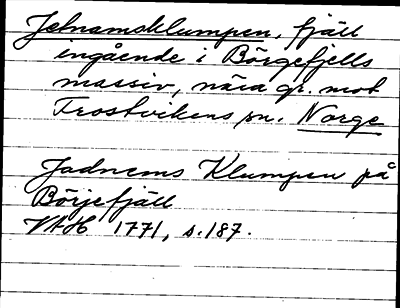 Jetnamsklumpen, fjäll
ingående i Börgefjells
massiv, nära gr. mot
Frostvikens sn. Norge
Jadnems Klumpen på
Börjefjäll
VAH 1771, s. 187.